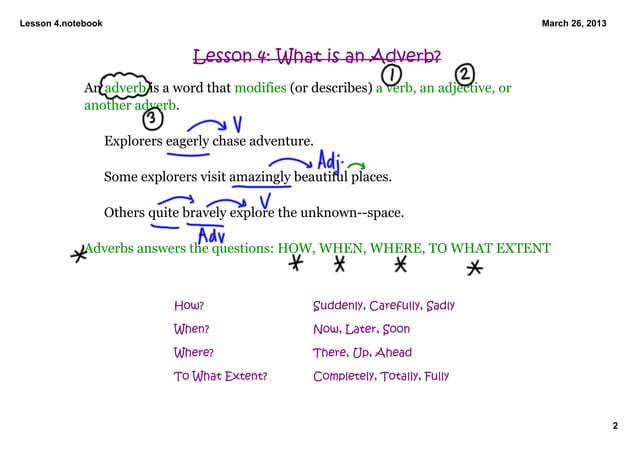 Lesson 4.notebook
March 26, 2013
Lesson 4: What is an Adverb?
1 2
An adverb is a word that modifies (or describes) a verb, an adjective, or
another adverb.
3
V
Explorers eagerly chase adventure.
Adj.
Some explorers visit amazingly beautiful places.
V
Others quite bravely explore the unknown--space.
Adv
Adverbs answers the questions: HOW, WHEN, WHERE, TO WHAT EXTENT
How? Suddenly, Carefully, Sadly
When? Now, Later, Soon
Where? There, Up, Ahead
To What Extent? Completely, Totally, Fully
2